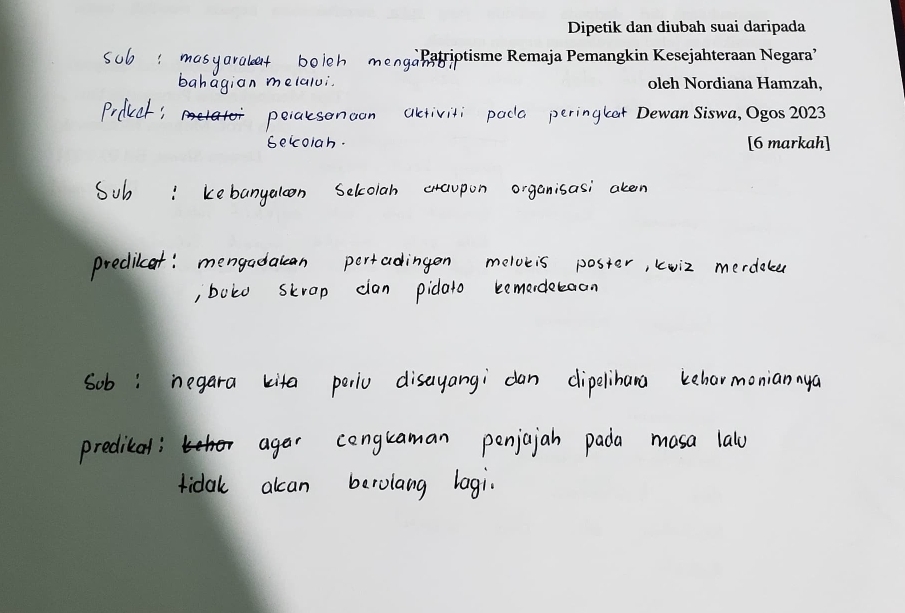 Dipetik dan diubah suai daripada
'Patriotisme Remaja Pemangkin Kesejahteraan Negara'
oleh Nordiana Hamzah,
Dewan Siswa, Ogos 2023
[6 markah]
Sub : masyarakat boleh mengambil
bahagian melalui.
Prdkat : melalui pelaksanaan aktiviti pada peringkat
sekolah.
Sub : kebanyakan sekolah ataupun organisasi akan
predikat : mengadakan pertadingan melukis poster , kuiz merdeka
, buku skrap dan pidato kemerdekaan
Sub : negara kita perlu disayangi dan dipelihara keharmoniannya
predikat : kehar agar cengkaman penjajah pada masa lalu
tidak akan berulang lagi.